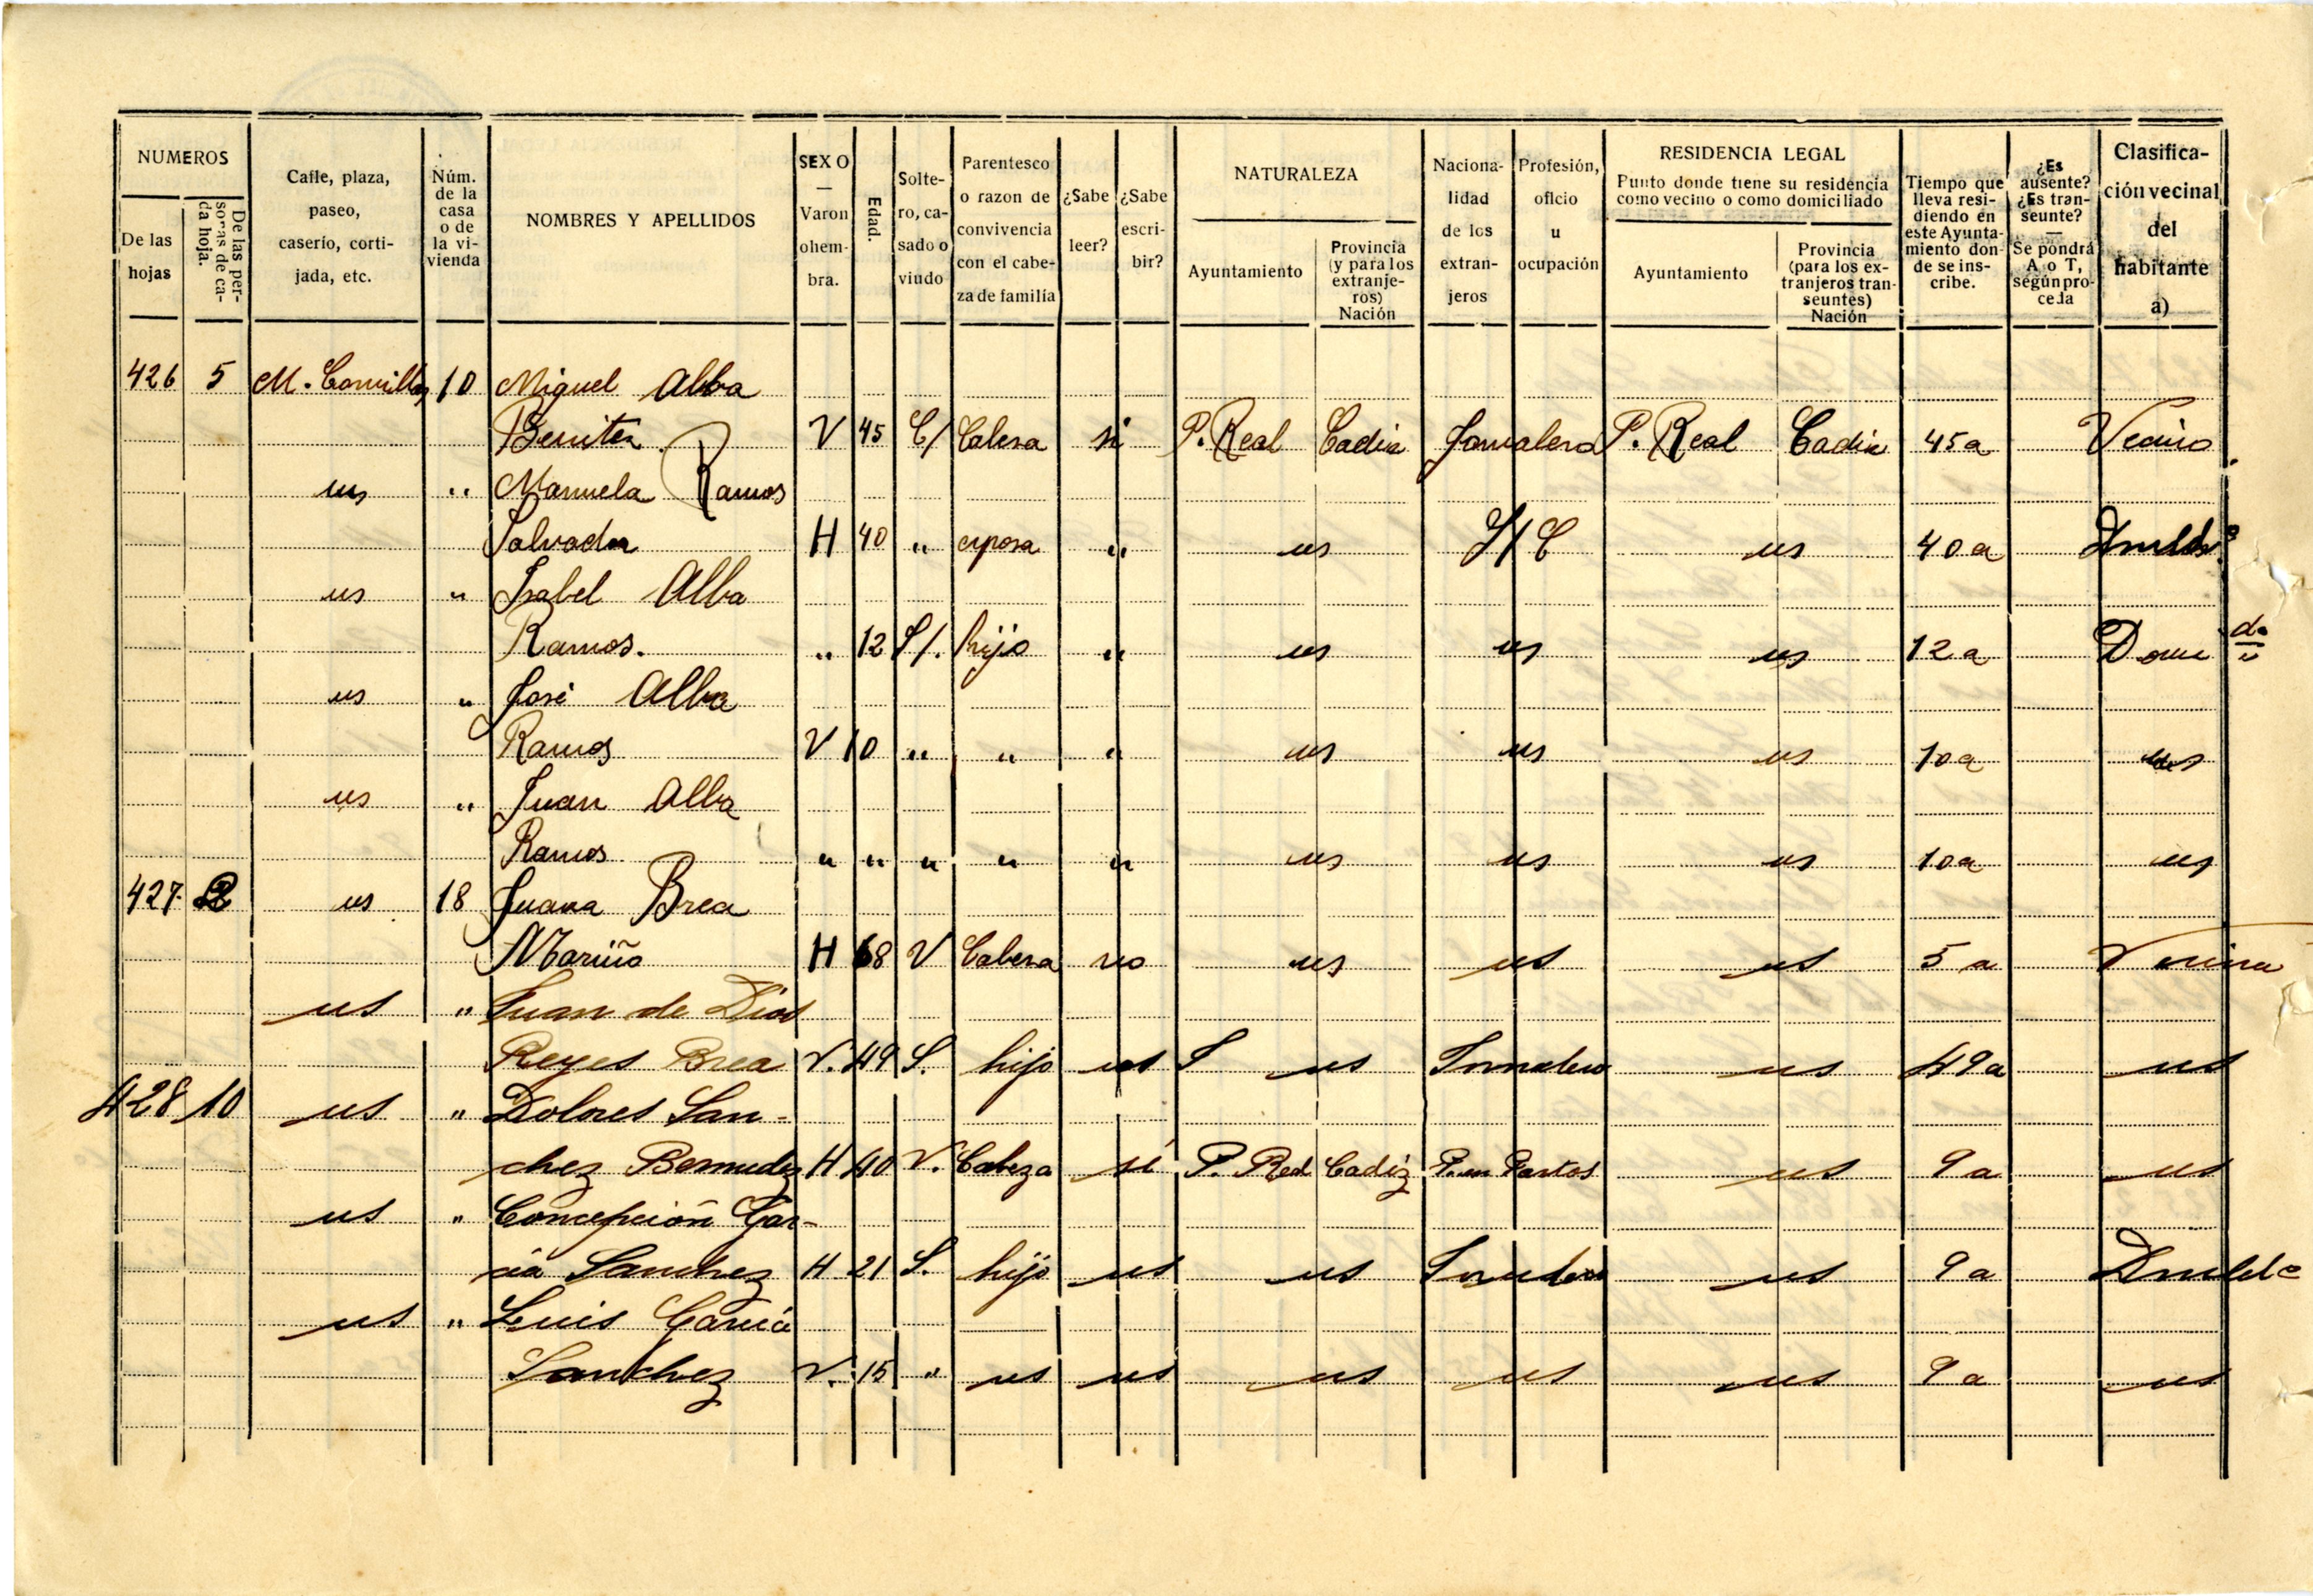 NUMEROS
De las hojas
De las personas de cada hoja.
Calle, plaza, paseo, caserío, cortijada, etc.
Núm. de la casa o de la vivienda
NOMBRES Y APELLIDOS
SEXO — Varon o hembra.
Edad.
Soltero, casado o viudo
Parentesco o razon de convivencia con el cabeza de familía
¿Sabe leer?
¿Sabe escribir?
NATURALEZA
Ayuntamiento
Provincia (y para los extranjeros) Nación
Nacionalidad de los extranjeros
Profesión, oficio u ocupación
RESIDENCIA LEGAL
Punto donde tiene su residencia como vecino o como domiciliado
Ayuntamiento
Provincia (para los extranjeros transeuntes) Nación
Tiempo que lleva residiendo en este Ayuntamiento donde se inscribe.
¿Es ausente? ¿Es transeunte? — Se pondrá A o T, según proceda
Clasificación vecinal del habitante a)
426 5 M. Comillas 10 Miguel Alba
Benitez V 45 C/ Cabeza si P. Real Cadiz Jornalero P. Real Cadiz 45a Vecino
us " Manuela Ramos
Salvador H 40 " esposa " us S/C us 40 a
us " Isabel Alba
Ramos. " 12 S/. hijo " us us us 12 a Domi
us " José Alba
Ramos V 10 " " " us us us 10a us
us " Juan Alba
Ramos " " " " " us us us 10a us
427 2 us 18 Juana Brea
Mariño H 68 V Cabeza no us us us 5 a Vecina
us " Juan de Dios
Reyes Brea V. 49 S. hijo us us Jornalero us 49a us
428 10 us " Dolores San-
chez Bermudez H 40 V. Cabeza si P. Real Cadiz Partos us 9a us
us " Concepción Gar-
cia Sanchez H 21 S. hijo us us us 9a
us " Luis Garcia
Sanchez V. 15 " us us us us us 9a us